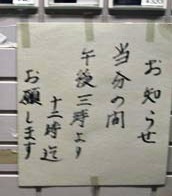 お知らせ
当分の間
午後三時より
十二時迄
お願します